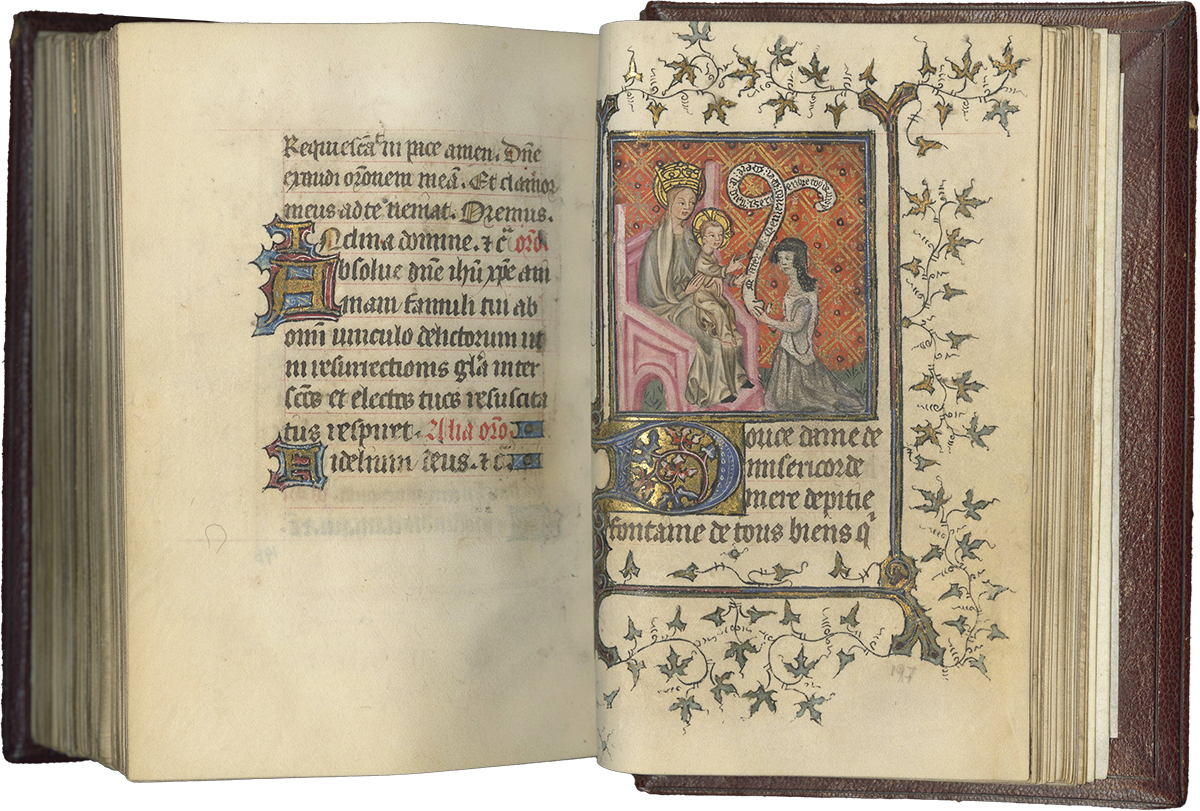 Requiescāt in pace amen. Dn̄e
exaudi orōnem meā. Et clamor
meus ad te veniat. Oremus.
Inclina domine. ⁊ c̄ orō
Absolue dn̄e ih̄u xp̄e ani
mam famuli tui ab
omī vinculo delictorum ut
in resurrectionis gl̄a inter
sc̄os et electos tuos resuscita
tus respiret. Alia orō
Fidelium deus. ⁊ c̄
Douce dame de
misericorde
mere de pitie
fontaine de tous biens q̄
197